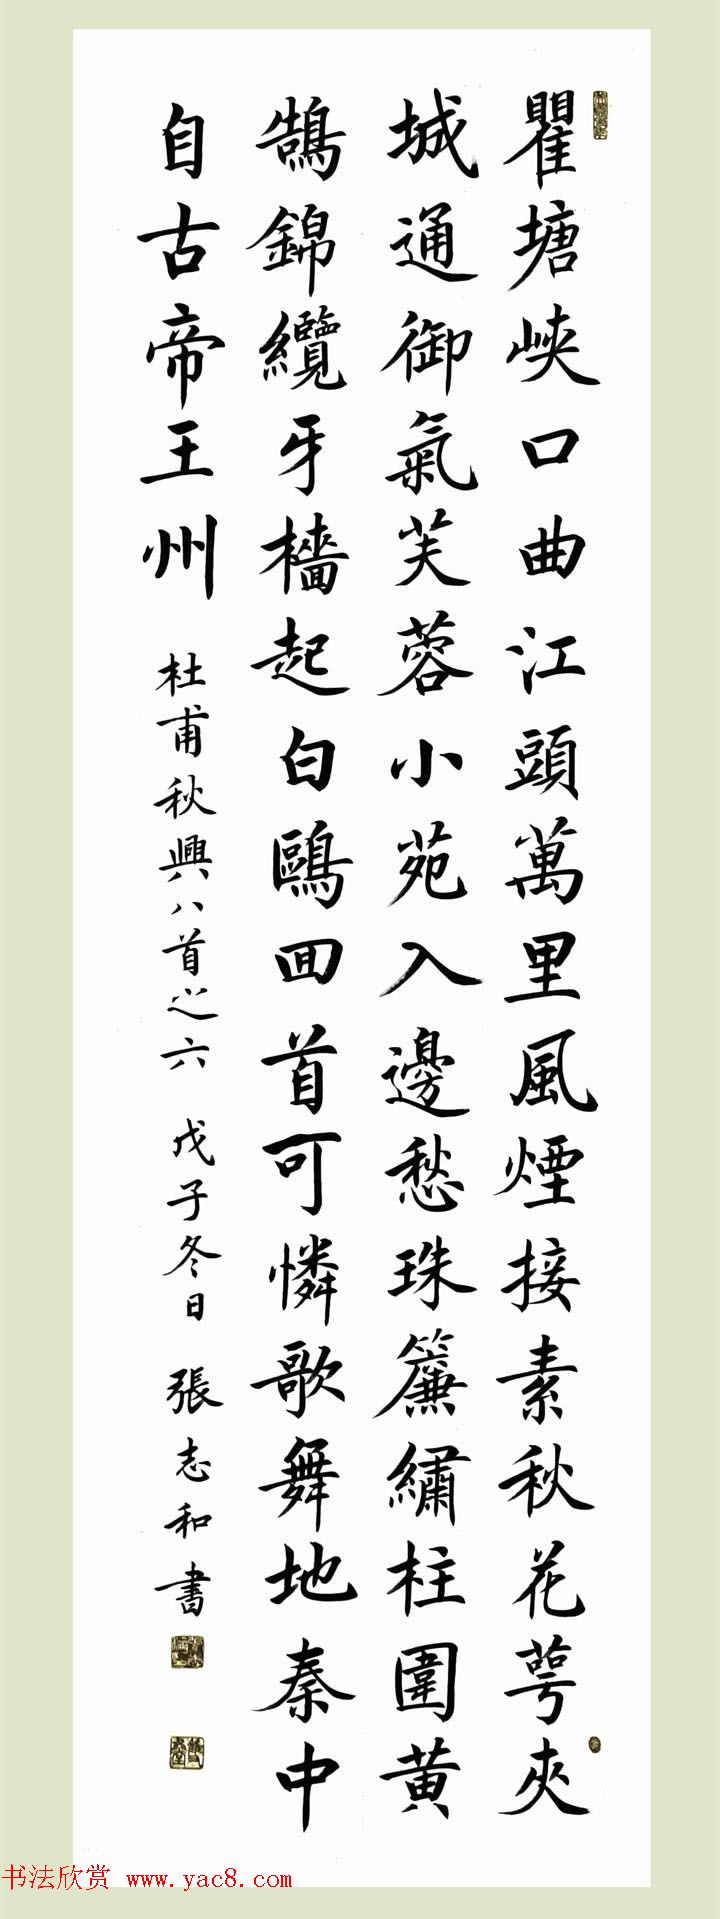 瞿塘峽口曲江頭萬里風煙接素秋花萼夾
城通御氣芙蓉小苑入邊愁珠簾繡柱圍黄
鵠錦纜牙檣起白鷗回首可憐歌舞地秦中
自古帝王州
杜甫秋興八首之六 戊子冬日 張志和書
书法欣赏 www.yac8.com